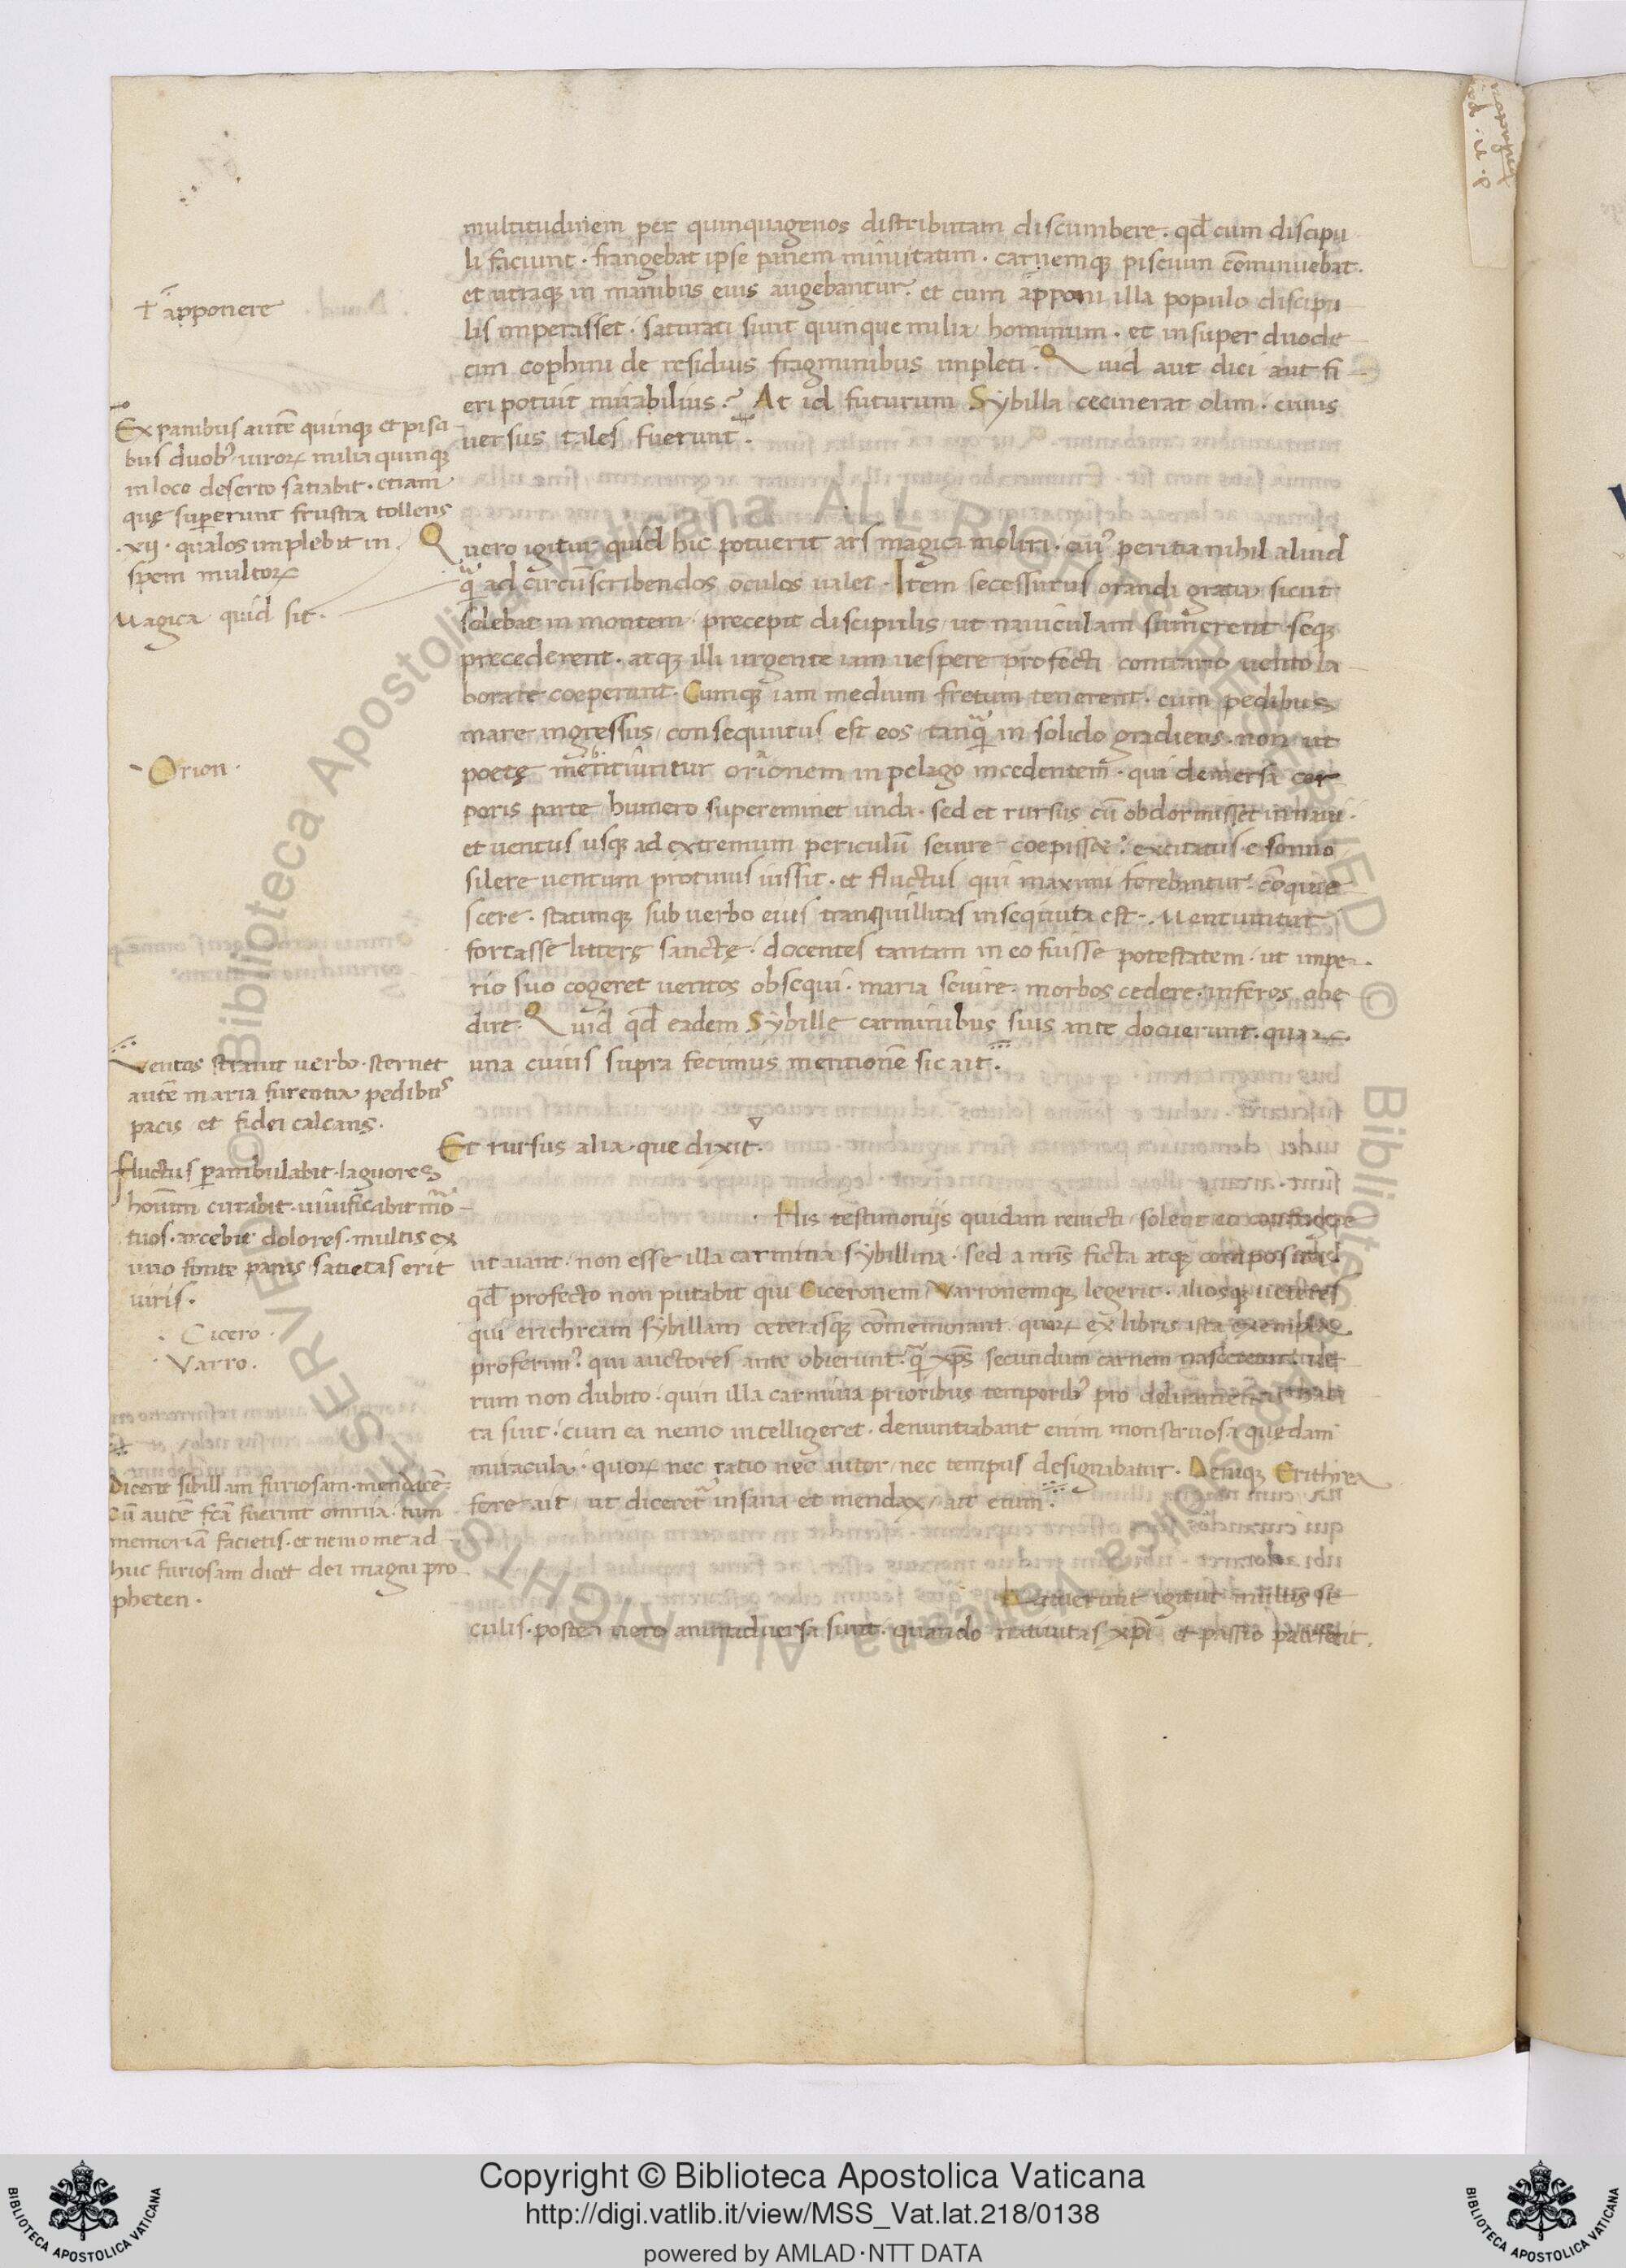 multitudinem per quinquagenos distributam discumbere. qd̄ cum discipu
li faciunt. frangebat ipse panem minutatim. carnemq; piscium cōminuebat.
et utraq; in manibus eius augebantur. et cum apponi illa populo discipu
lis imperasset. saturati sunt quinque milia hominum. et insuper duode
cim cophini de residuis fragminibus impleti. Quid aut dici aut fi
eri potuit mirabilius? At id futurum Sybilla cecinerat olim. cuius
uersus tales fuerunt.
Quero igitur quid hic potuerit ars magica moliri. cuiꝰ peritia nihil aliud
q̄ ad circūscribendos oculos ualet. Item secessurus orandi gratia sicut
solebat in montem. precepit discipulis ut nauiculam sumerent seq;
precederent. atq; illi urgente iam uespere profecti contrario uento la
borare coeperunt. Cumq; iam medium fretum tenerent. cum pedibus
mare ingressus consequutus est eos tanq̄ in solido gradiens. non ut
poetę mentiuntur orionem in pelago incedentem. qui demersa cor
poris parte humero supereminet unda. sed et rursus cū obdormisset in naui.
et uentus usq; ad extremum periculū seuire coepisset. excitatus e somno
silere uentum protinus iussit. et fluctus qui maximi ferebantur. cōquie
scere. statimq; sub uerbo eius tranquillitas insequuta est. Mentiuntur
fortasse litterę sanctę. docentes tantam in eo fuisse potestatem. ut impe
rio suo cogeret uentos obsequi. maria seruire. morbos cedere. inferos obe
dire. Quid qd̄ eadem Sybille carminibus suis ante docuerunt. quaꝝ
una cuius supra fecimus mentionē sic ait.
Et rursus alia que dixit.
His testimonijs quidam reuicti solent eo confugere
ut aiant. non esse illa carmina sybillina. sed a nr̄is ficta atq; composita.
qd̄ profecto non putabit qui Ciceronem Varronemq; legerit. aliosq; ueteres
qui erithream sybillam ceterasq; cōmemorant quoꝝ ex libris ista exempla
proferimꝰ. qui auctores ante obierunt. q̄ xp̄s secundum carnem nasceretur. ue
rum non dubito. quin illa carmina prioribus temporibꝰ pro deliramentis habi
ta sint. cum ea nemo intelligeret. denuntiabant enim monstruosa quędam
miracula. quoꝝ nec ratio nec autor nec tempus designabatur. Deniq; Erithrea
fore ait ut diceret insana et mendax. ait enim.
Latuerunt igitur multis se
culis. postea uero animaduersa sunt. quando natiuitas xp̄i et passio patefecit.
apponere
Ex panibus autē quinq; et pisci
bus duobꝰ uiroꝝ milia quinq;
in loco deserto satiabit. etiam
quę superunt frustra tollens
.xij. qualos implebit in
spem multoꝝ
Magica quid sit.
Orion.
Ventos strauit uerbo. sternet
autē maria furentia pedibus
pacis et fidei calcans.
Fluctus perambulabit. lāguores
hominum curabit. uiuificabit mor
tuos. arcebit dolores. multis ex
uno fonte panis satietas erit
uiris.
Cicero.
Varro.
Dicent sibillam furiosam. mendacē.
Cū autē fc̄a fuerint omnia. tum
memoriā facietis. et nemo me ad
huc furiosam dicet dei magni pro
pheten.
Copyright © Biblioteca Apostolica Vaticana
http://digi.vatlib.it/view/MSS_Vat.lat.218/0138
powered by AMLAD·NTT DATA
BIBLIOTECA APOSTOLICA VATICANA
BIBLIOTECA APOSTOLICA VATICANA
© Biblioteca Apostolica Vaticana ALL RIGHTS RESERVED
© Biblioteca Apostolica Vaticana ALL RIGHTS RESERVED